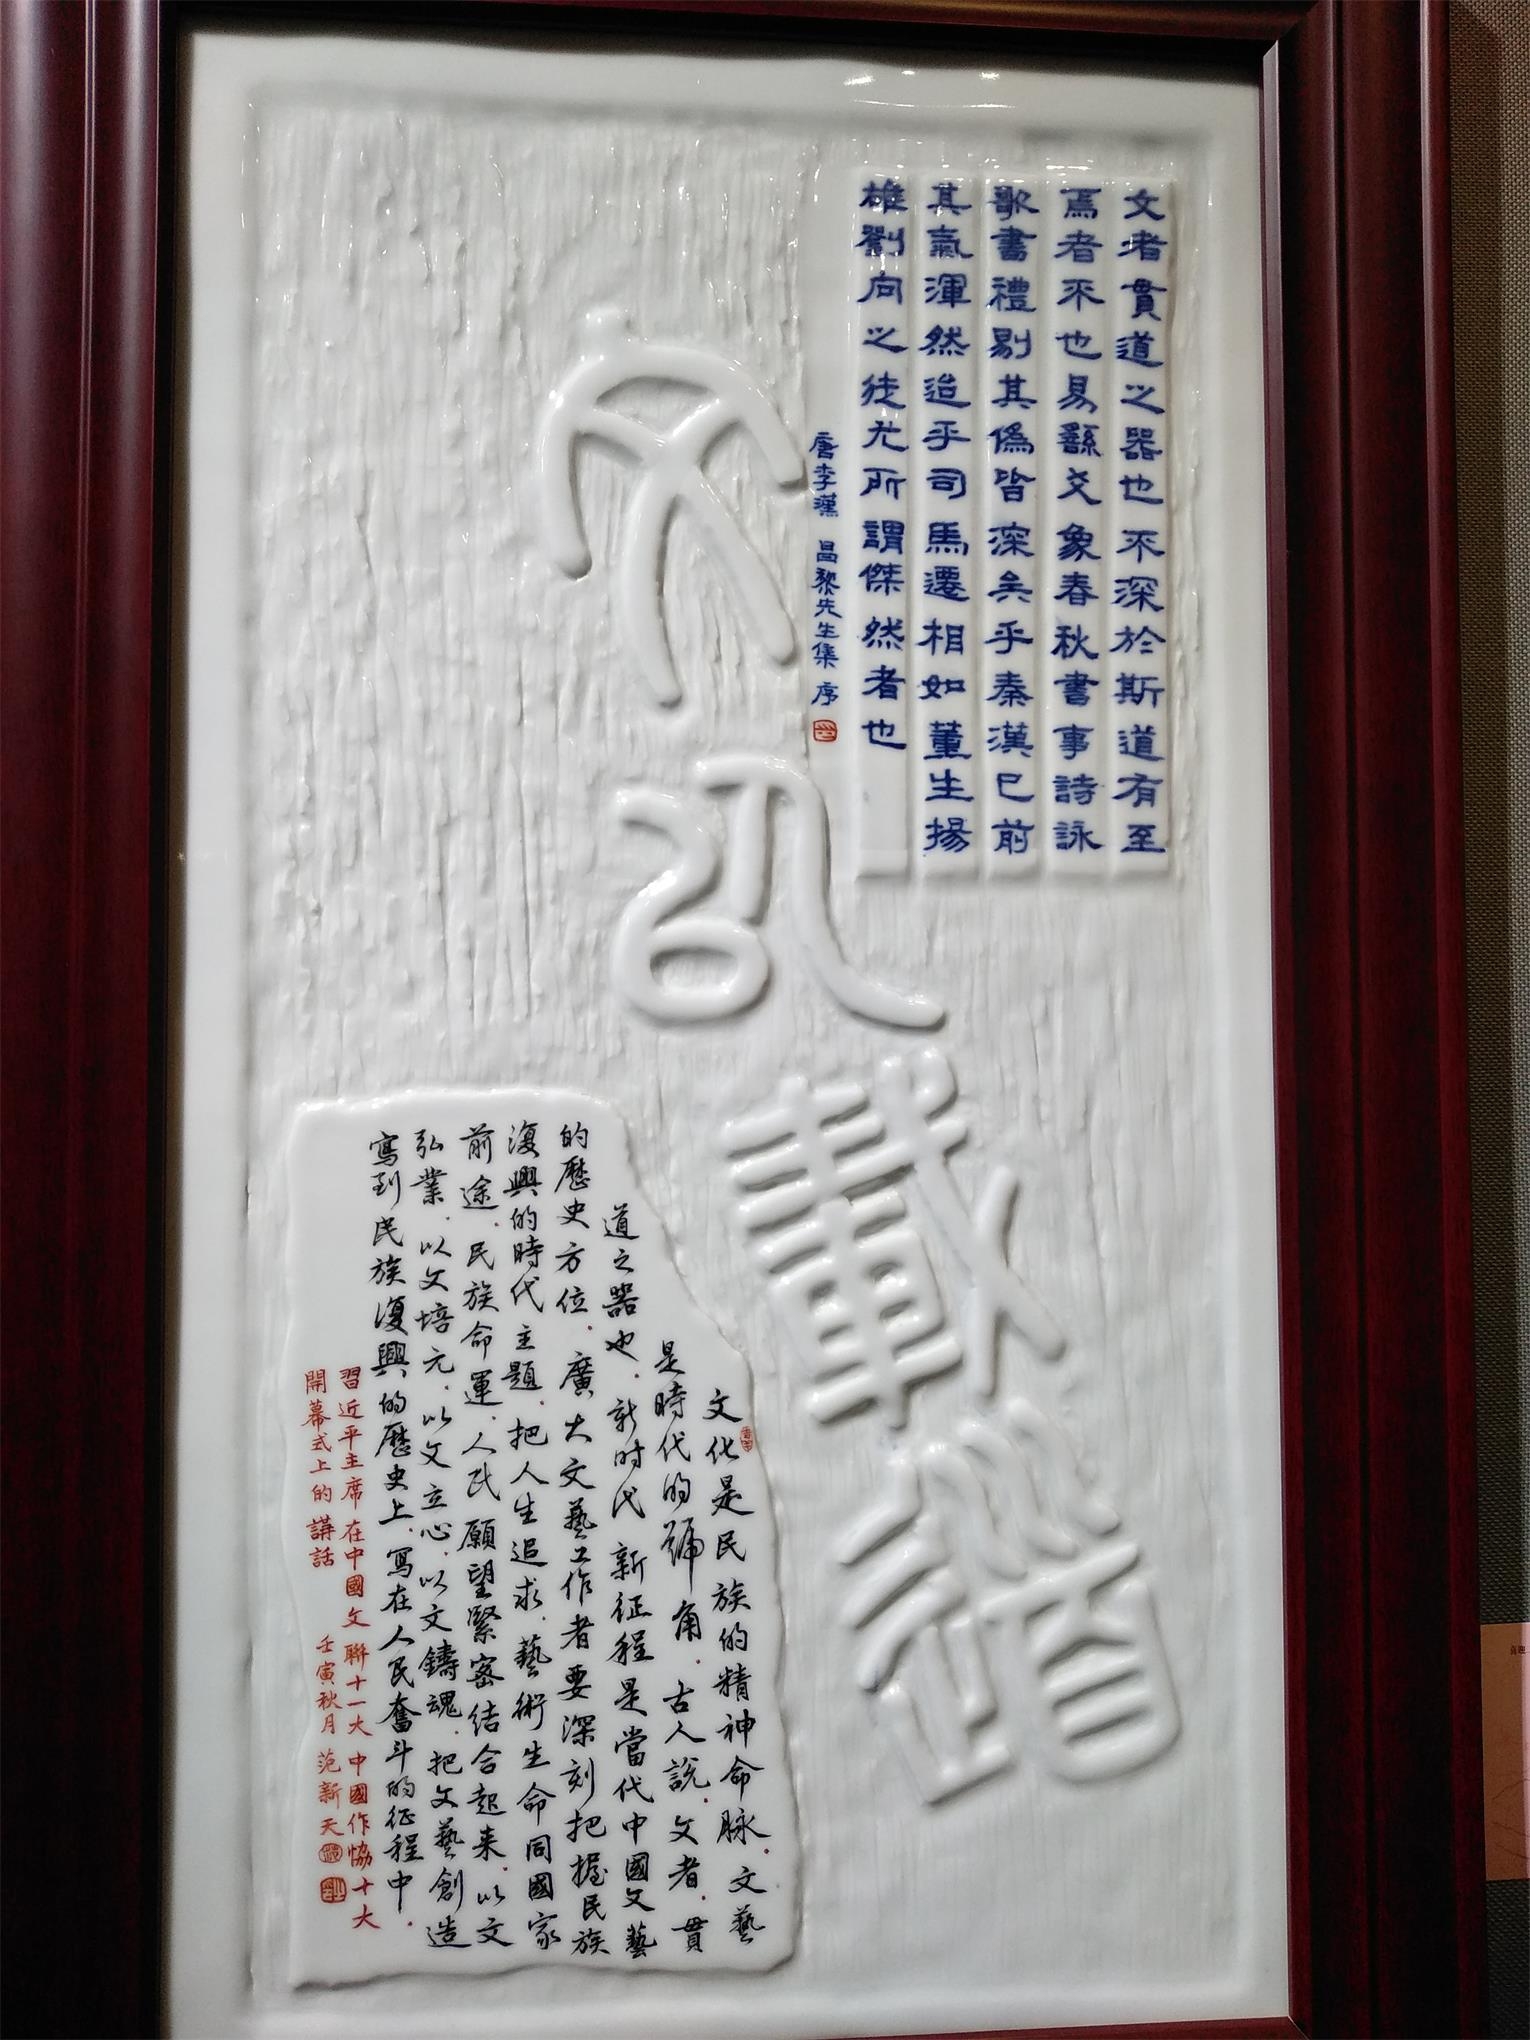 文者貫道之器也不深於斯道有至
焉者不也易繇爻象春秋書事詩詠
歌書禮剔其偽皆深矣乎秦漢已前
其氣渾然迨乎司馬遷相如董生揚
雄劉向之徒尤所謂傑然者也
唐李漢 昌黎先生集序
文以載道
文化是民族的精神命脉.文藝
是時代的號角.古人說.文者.貫
道之器也.新时代新征程是當代中國文藝
的歷史方位.廣大文藝工作者要深刻把握民族
復興的時代主題.把人生追求.藝術生命同國家
前途.民族命運.人民願望緊密結合起来.以文
弘業.以文培元.以文立心.以文鑄魂.把文藝創造
寫到民族復興的歷史上.寫在人民奮斗的征程中.
習近平主席在中國文聯十一大中國作協十大
開幕式上的講話 壬寅秋月 范新天